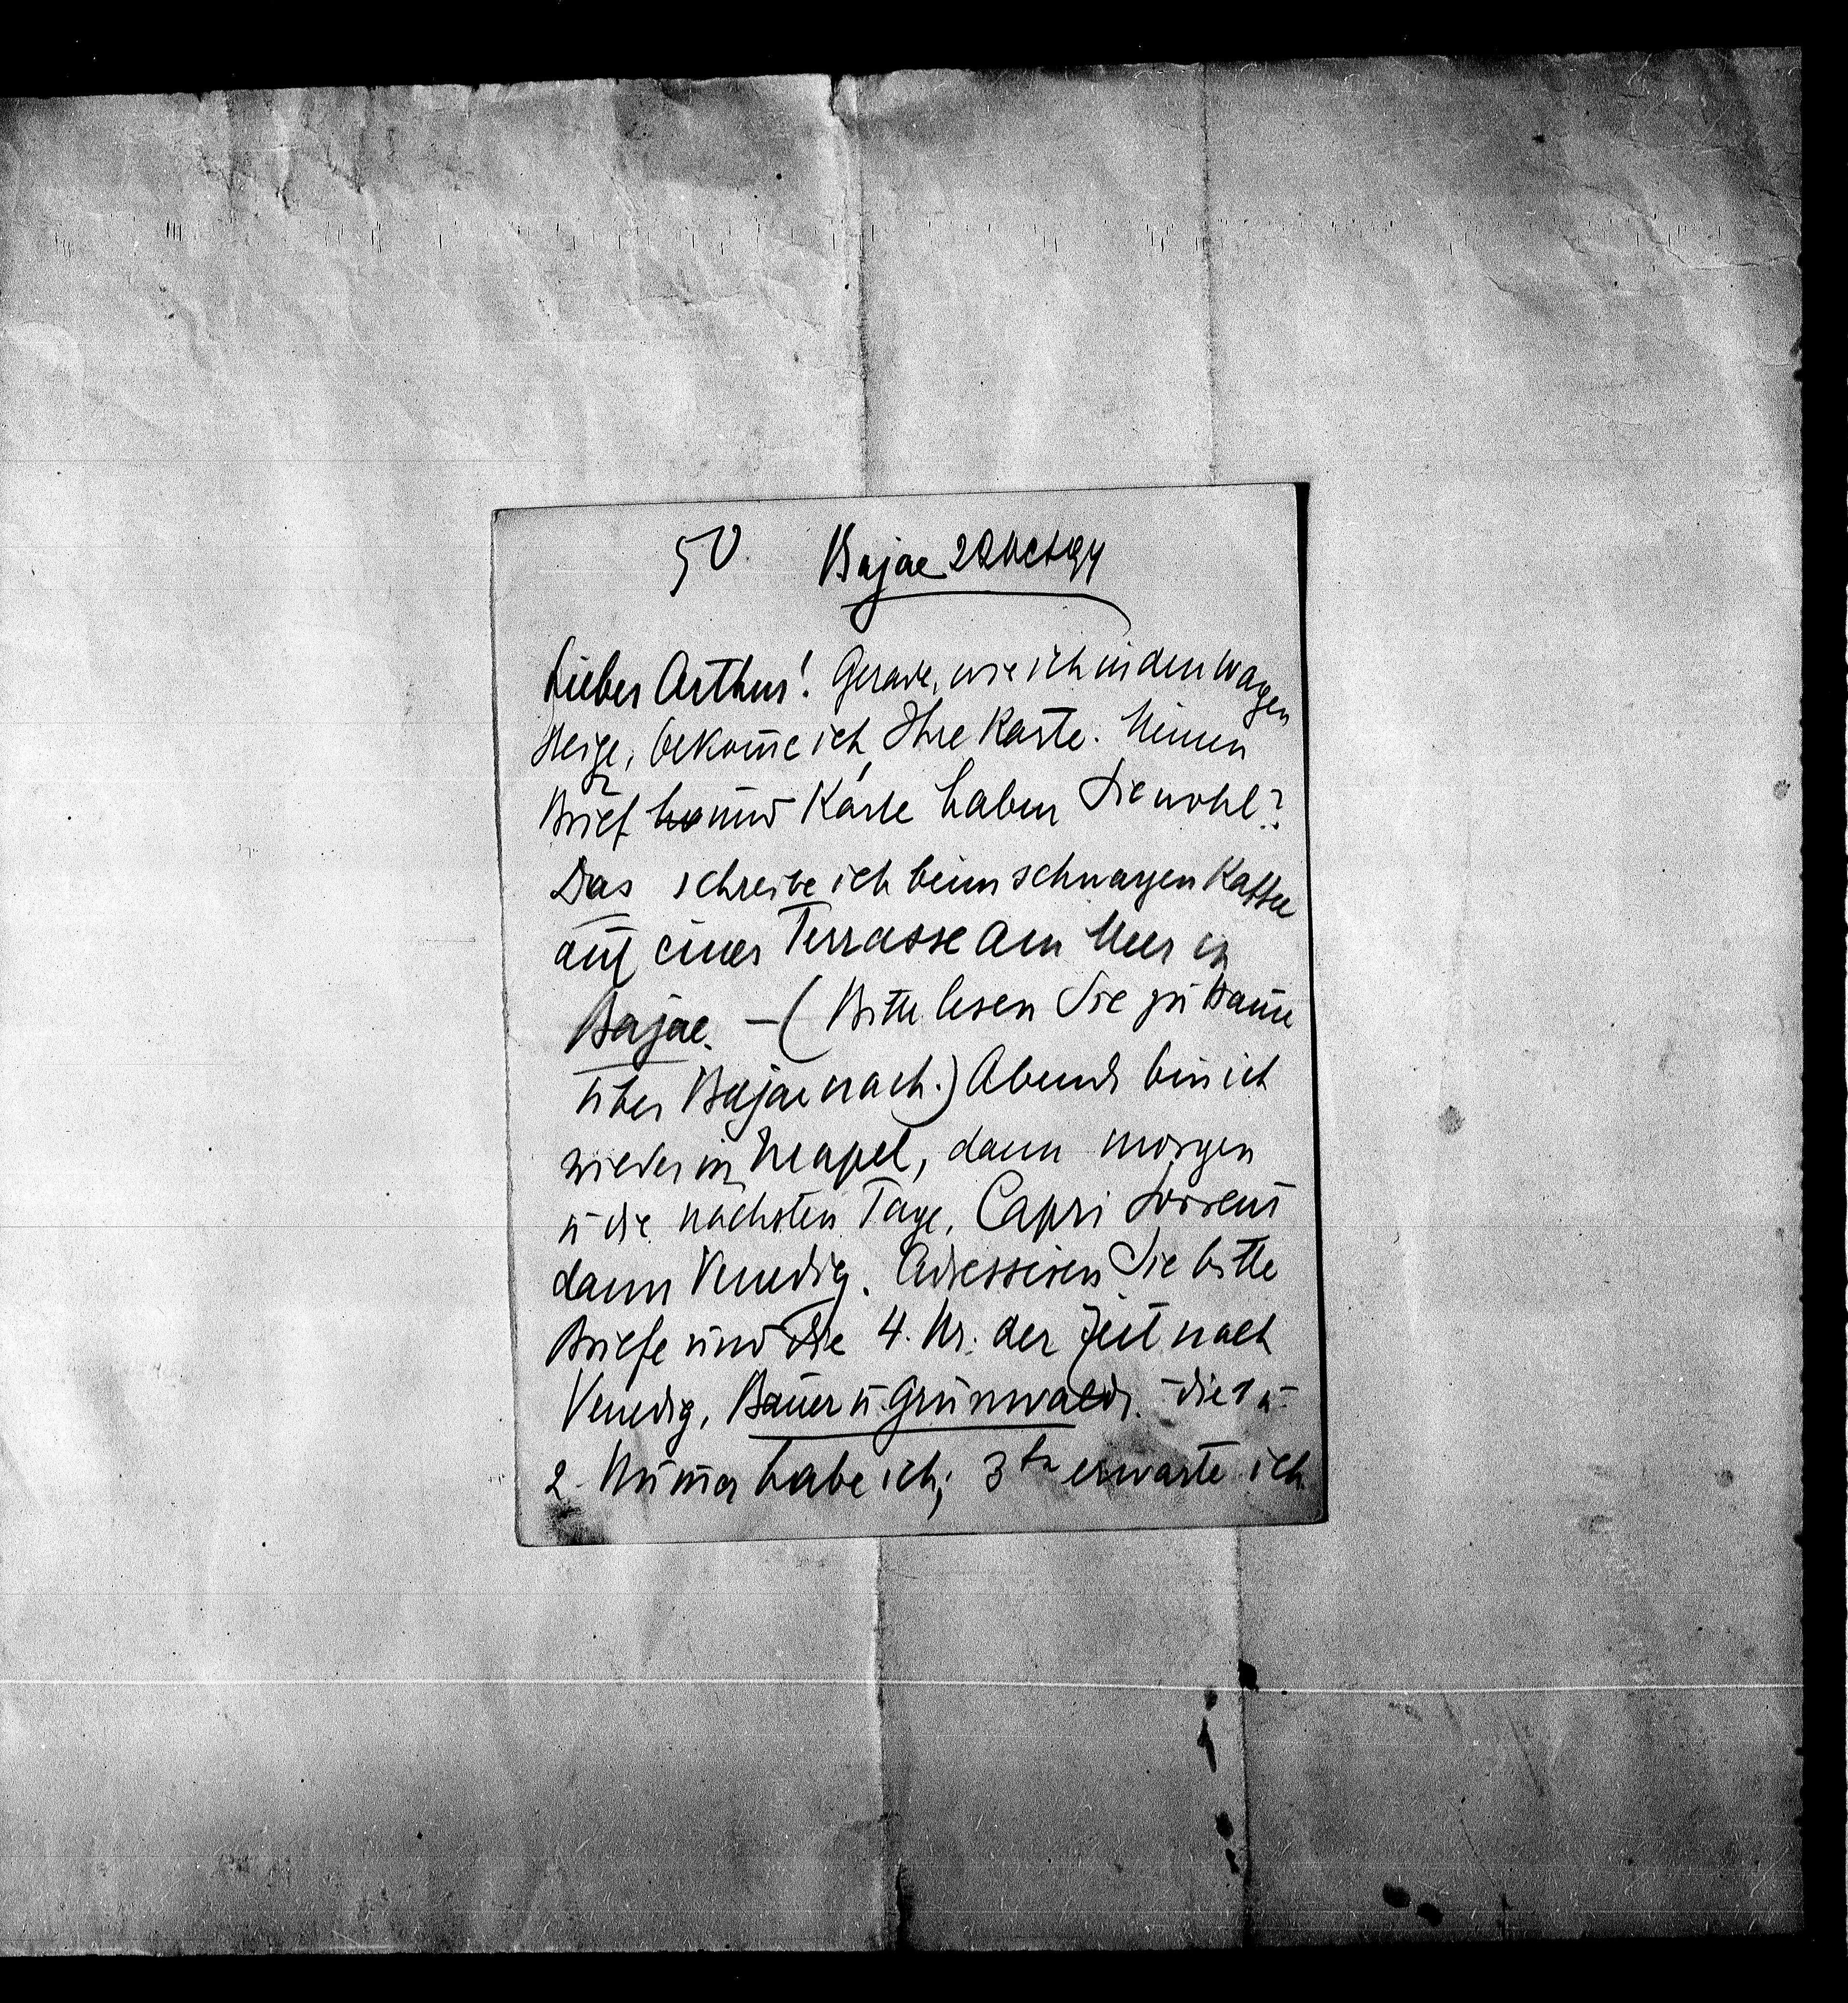 50. Bajae 22 Oct 94
Lieber Arthur! Gerade, wie ich in den Wagen
steige, bekom̄e ich Ihre Karte. Meinen
Brief und Karte haben Sie wohl?
Das schreibe ich beim schwarzen Kaffee
auf einer Terrasse am Meer in
Bajae. – (Bitte lesen Sie zu Hause
über Bajae nach.) Abends bin ich
wieder in Neapel, dann morgen
u die nächsten Tage, Capri Sorrent
dann Venedig. Adressiren Sie bitte
Briefe und die 4. Nr. der Zeit nach
Venedig, Bauer u. Grünwald. – die 1 u
2. Num̄er habe ich; 3te erwarte ich